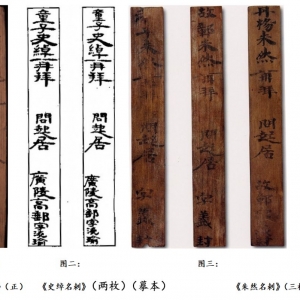 丹楊朱然再拜 問起居 故鄣字義封
故鄣朱然再拜 問起居 字義封
朱然再拜 問起居 字義封
童子史綽再拜 問起居 廣陵高郵字澆瑜
童子史綽再拜 問起居 廣陵高郵字澆瑜
图二：
图三：
（正）
《史绰名刺》（两枚）（摹本）
《朱然名刺》（三